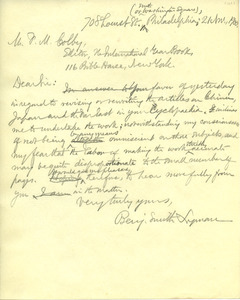 (south
of Washington Square)
708 Locust St., Philadelphia, 21
Mr. F. M. Colby,
Editor, The International Year Book,
116 Bible House, New York.
Dear Sir:— In answer to your favor of yesterday
in regard to revising or rewriting the articles on Chinese,
Japan and the Far East in your Cyclopaedia, I
me to undertake the work; notwithstanding my consciousness
of not being omniscient on these subjects, and
my fear that the labor of making the work accurate
may be quite disproportionate to the small number of
pages. therefore, to hear more fully from
you in the matter.
Very truly yours,
Benj. Smith Lyman.